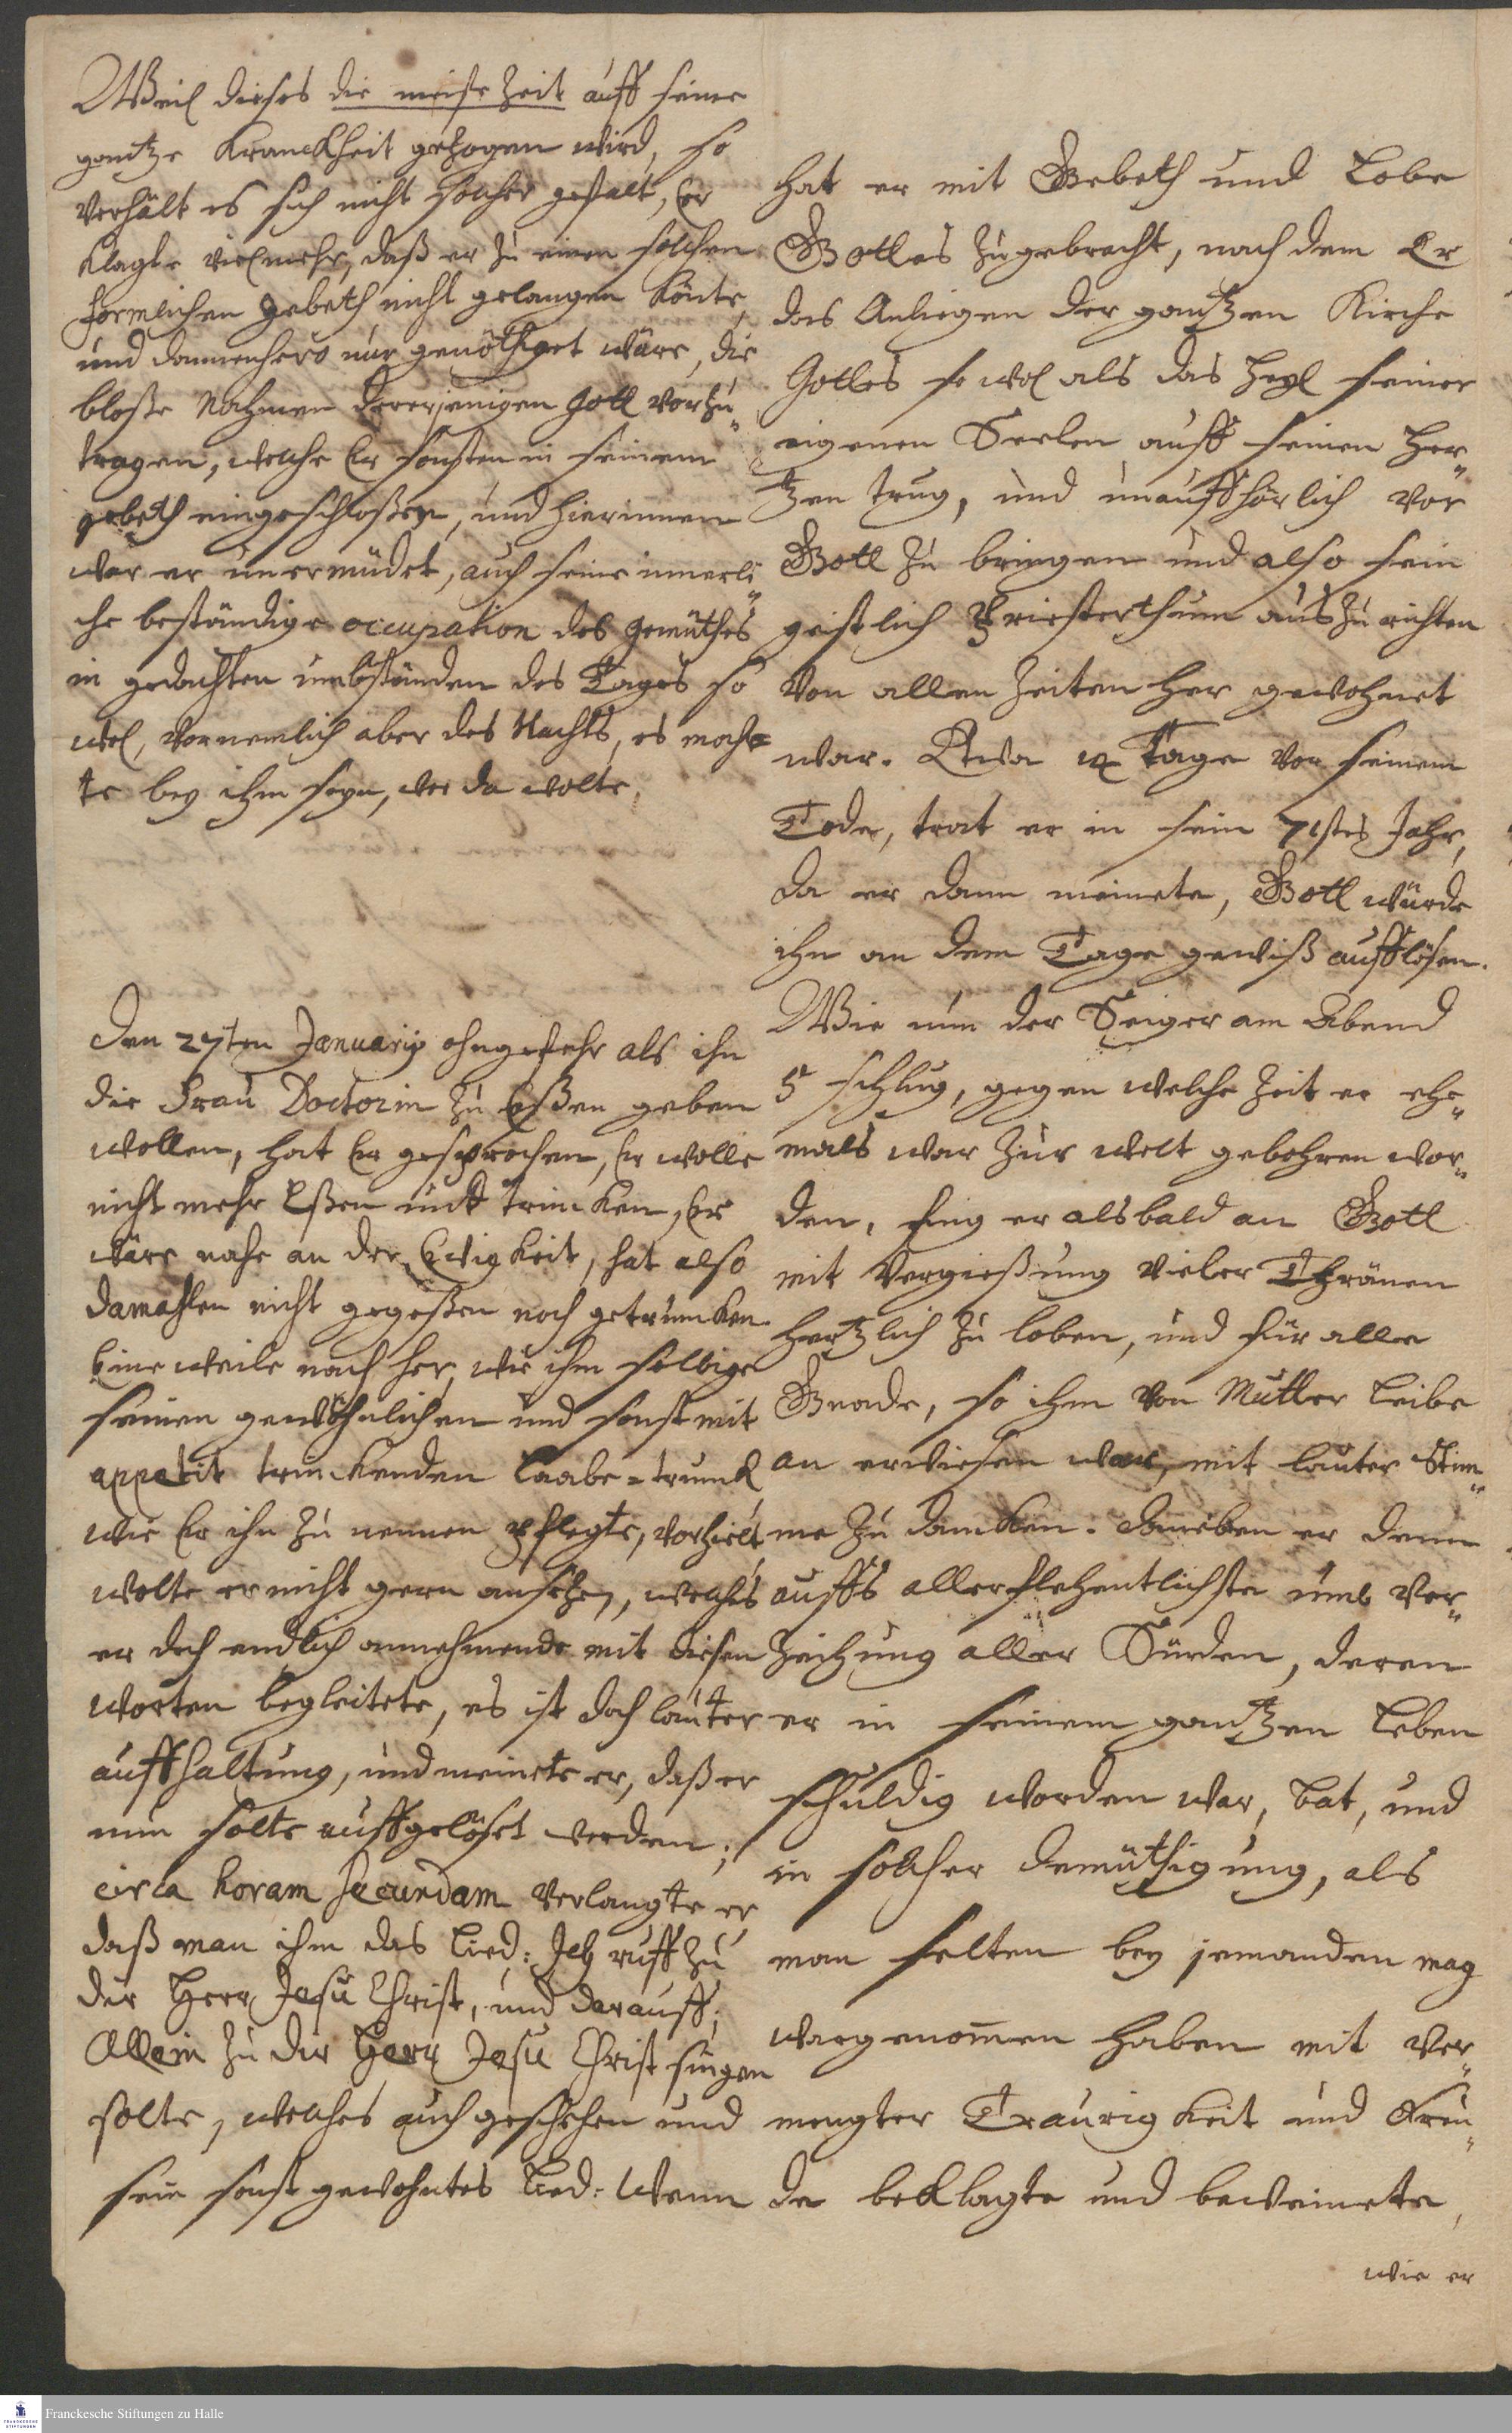 Weil dieses die meiste Zeit auff seine
gantze Kranckheit gezogen wird, so
verhält es sich nicht solcher gestalt, Er
klagte vielmehr, daß er zu einen solchen
förmlichen gebeth nicht gelangen könte,
und dannenhero nur genöthiget wäre, die
bloße Nahmen dererjenigen Gott vorzu„
tragen, welche Er sonsten in seinem
gebeth eingeschloßen, und hierinnen
war er unermüdet, auch seine innerli„
che beständige occupation des gemüthes
in gedachten umbständen des Tages so
wol, vornemlich aber des Nachts, es moch
te bey ihm seyn, wer da wolte.
Den 27ten Januarij ohngefehr als ihn
die Frau Doctorin zu Eßen geben
wollen, hat Er gesprochen, Er wolle
nicht mehr Eßen undt trincken, Er
wäre nahe an der Ewigkeit, hat also
damahlen nicht gegeßen noch getruncken.
Eine weile nach her, wie ihm selbige
seinen gewöhnlichen und sonst mit
appetit trinckenden Laabe-trunck
wie Er ihn zu nennen pflegte, vorhielt
wolte er nicht gern ansehen, welches
er doch endlich annehmende mit diesen
worten begleitete, es ist doch lauter
auffhaltung, und meinete er, daß er
nun solte auffgelöset werden;
circa horam secundam verlangte er,
daß man ihm das Lied: Ich ruff zu
dir Herr Jesu Christ, und darauff;
Allein zu dir Herr Jesu Christ singen
solte, welches auch geschehen und
sein sonst gewohntes Lied: Wenn
hat er mit Gebeth und Lobe
Gottes zugebracht, nach dem Er
das Anliegen der gantzen Kirche
Gottes so wol als das Heyl seiner
eigenen Seelen auff seinen Her„
tzen trug, und unauffhörlich vor
Gott zu bringen und also sein
geistlich Priesterthum auszurichten
von allen Zeiten her gewohnet
war. Etwa Tage vor seinem
Tode, trat er in sein 71stes Jahr,
da er dann meinete, Gott würde
ihn an dem Tage gewiß aufflösen.
Wie nun der Seiger am Abend
5 schlug, gegen welche Zeit er ehe„
mals war zur welt gebohren wor„
den, fing er alsbald an Gott
mit Vergießung vieler Thränen
hertzlich zu loben, und für alle
Gnade, so ihm von Mutter Leibe
an erwiesen war, mit lauter Stim„
me zu dancken. Daneben er denn
auffs allerflehentlichste umb Ver„
zeihung aller Sünden, deren
er in seinem gantzen Leben
schuldig worden war, bat, und
in solcher demüthigung, als
man selten bey jemanden mag
wargenommen haben mit ver„
mengter Traurigkeit und Freu„
de beklagte und beweinete,
wie er
Franckesche Stiftungen zu Halle